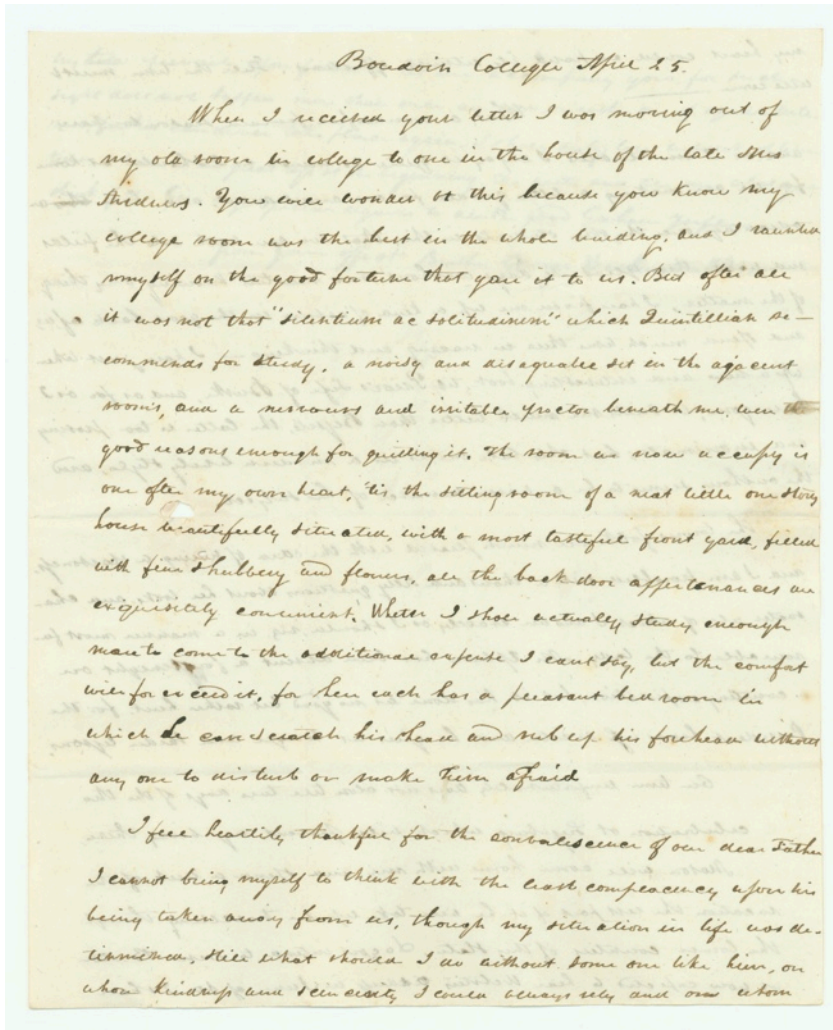 Bowdoin College April 25.
When I received your letter I was moving out of
my old room in college to one in the house of the late Mrs
Andrews. You will wonder at this because you know my
college room was the best in the whole building, and I
myself on the good fortune that gave it to us. But after all
it was not that "silentium ac solitudinem" which Quintillian re-
commends for study, a noisy and disagreable set in the ajacent
rooms, and a nervours and irritable proctor beneath me, were
good reasons enough for quitting it. The room we now occupy is
one after my own heart, 'tis the sitting room of a neat little one story
house beautifully situated, with a most tasteful front yard, filled
with fine shubbery and flowers, all the back door appertenances are
exquisitely convenient. Whether I shall actually study enough
more to come to the additional expense I cant say, but the comfort
will far exceed it, for here each has a pleasant bed room in
which he can scratch his head and rub up his forehead without
any one to disturb or make him afraid
I feel heartily thankful for the convalescence of our dear Father
I cannot bring myself to think with the least complacency upon his
being taken away from us, though my situation in life was de-
termined, still what should I do without some one like him, on
whose kindness and sincerity I could always rely and on whom